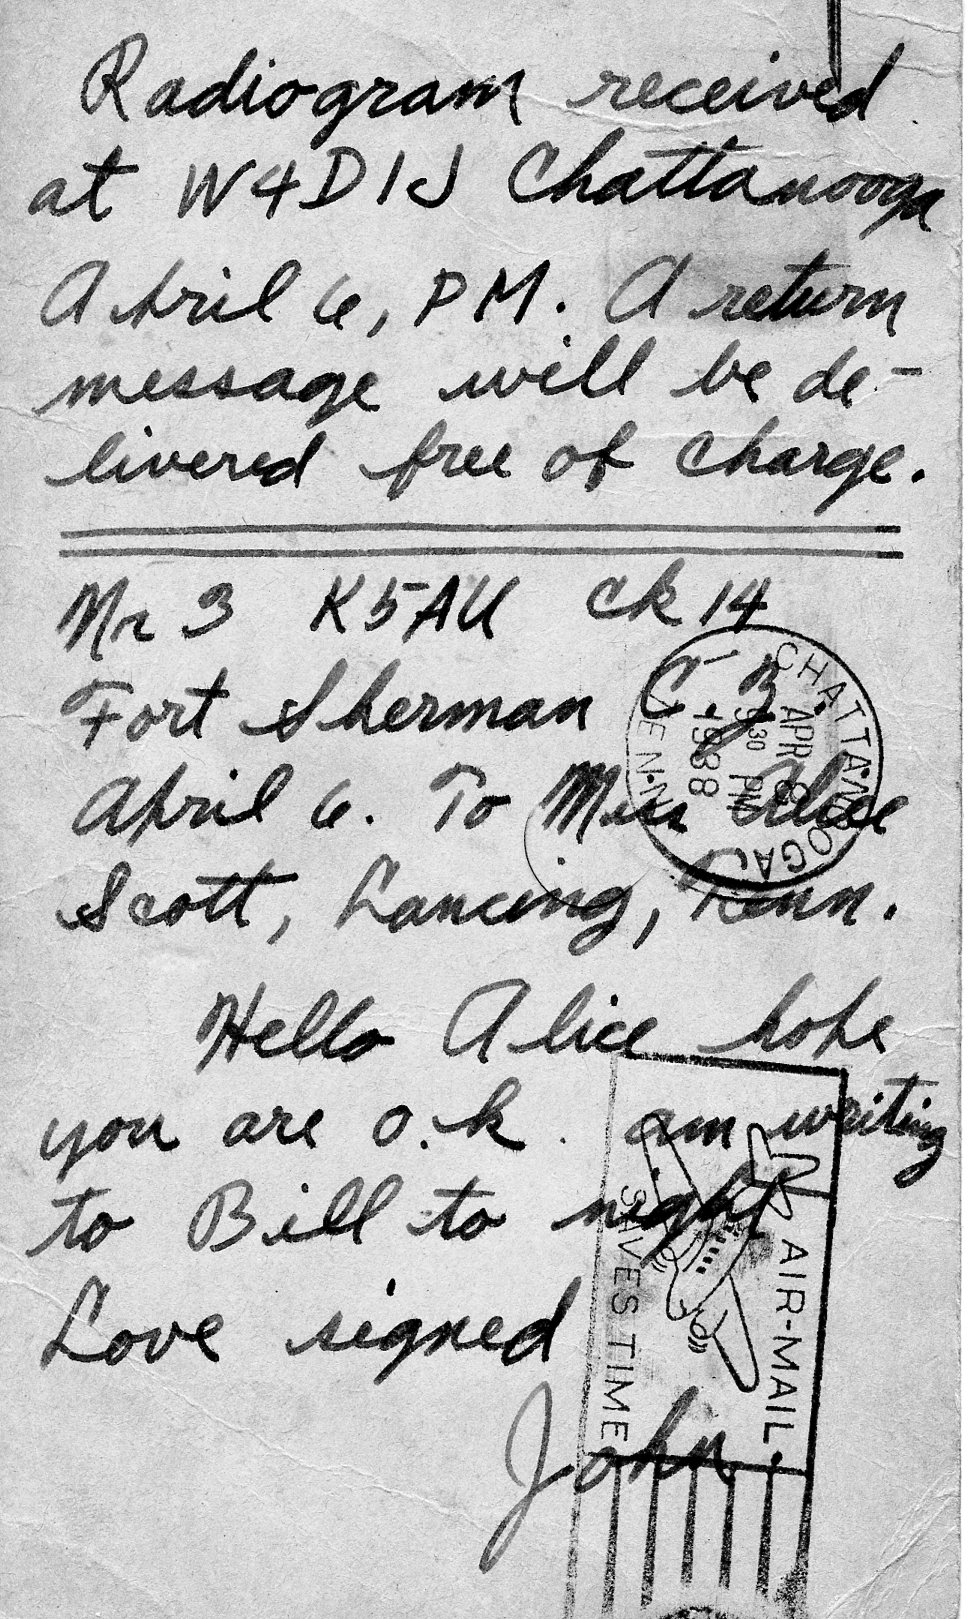 Radiogram received
at W4DIJ Chattanooga
April 6, PM. A return
message will be de-
livered free of charge.
Nr 3 K5AU ck 14
Fort Sherman C.Z.
April 6. To Miss Alice
Scott, Lancing, Tenn.
Hello Alice hope
you are o.k. am writing
to Bill to night
Love signed
John.
CHATTANOOGA
TENN.
APR 8
30 PM
1938
AIR-MAIL
SAVES TIME